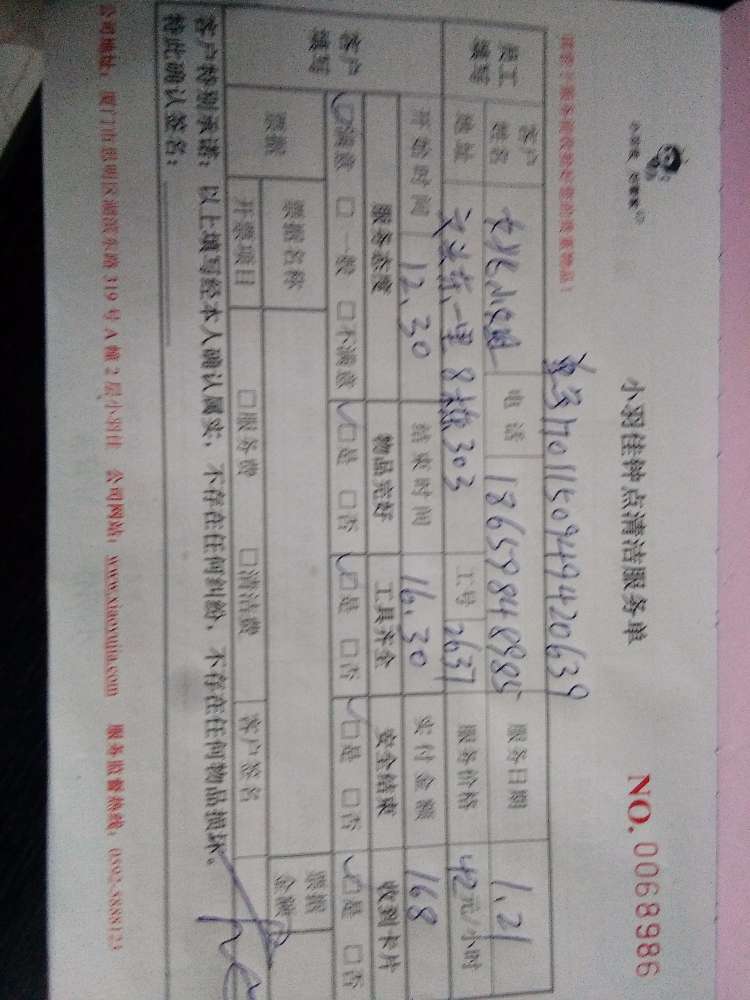 小羽佳 好管家
小羽佳钟点清洁服务单
NO. 0068986
1701150949420639
员工填写
客户姓名
电话
18659848985
服务日期
1.21
地址
一里8栋303
工号
2637
服务价格
42元/小时
客户填写
开始时间
12.30
结束时间
16.30
实付金额
168
服务态度
物品完好
工具齐全
安全结束
收到卡片
满意 □一般 □不满意
□是 □否
□是 □否
□是 □否
□是 □否
票据
票据名称
票据金额
开票项目
□服务费 □清洁费
客户签名
客户特别承诺：以上填写经本人确认属实，不存在任何纠纷，不存在任何物品损坏。
特此确认签名：
公司地址：厦门市思明区湖滨东路319号A幢2层小羽佳 公司网站：www.xiaoyujia.com 服务监督热线：0592-3888123